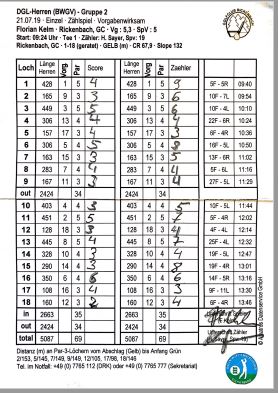 DGL-Herren (BWGV) - Gruppe 2
21.07.19 - Einzel - Zählspiel - Vorgabenwirksam
Florian Kelm - Rickenbach, GC - Vg : 5,3 - SpV : 5
Start: 09:24 Uhr - Tee 1 - Zähler: H. Sayer, Spv: 19
Rickenbach, GC - 1-18 (geratet) - GELB (m) - CR 67,9 - Slope 132
Loch Länge Herren Vorg Par Score Länge Herren Vorg Par Zaehler
1 428 1 5 4 428 1 5 9 5F - 5R 09:40
2 165 9 3 3 165 9 3 6 10F - 7L 09:54
3 449 3 5 5 449 3 5 6 10F - 4L 10:10
4 306 13 4 306 13 4 6 22F - 6R 10:24
5 157 17 3 4 157 17 3 6F - 4R 10:36
6 305 5 4 305 5 4 8 16F - 5L 10:50
7 163 15 3 3 163 15 3 5 13F - 6R 11:02
8 283 7 4 4 283 7 4 11:16
9 167 11 3 3 167 11 3 4 27F - 5L 11:29
out 2424 34 2424 34
10 403 4 4 403 4 4 5 10F - 5L 11:44
11 451 2 5 5 451 2 5 7 5F - 4R 12:02
12 128 18 3 128 18 3 4 8F - 4R 12:12
13 445 8 5 4 445 8 5 7 25F - 4L 12:32
14 328 10 4 3 328 10 4 4 12:46
15 290 14 4 3 290 14 4 8 19F - 4R 13:01
16 350 6 4 6 350 6 4 6 14F - 5R 13:16
17 108 16 3 4 108 16 3 9F - 11L 13:30
18 160 12 3 2 160 12 3 4 6F - 4R 13:46
in 2663 35 2663 35
out 2424 34 2424 34
total 5087 69 5087 69
Distanz (m) an Par-3-Löchern vom Abschlag (Gelb) bis Anfang Grün
2/153, 5/145, 7/149, 9/149, 12/105, 17/98, 18/146
Tel. im Notfall: +49 (0) 7765 112 (DRK) oder +49 (0) 7765 777 (Sekretariat)